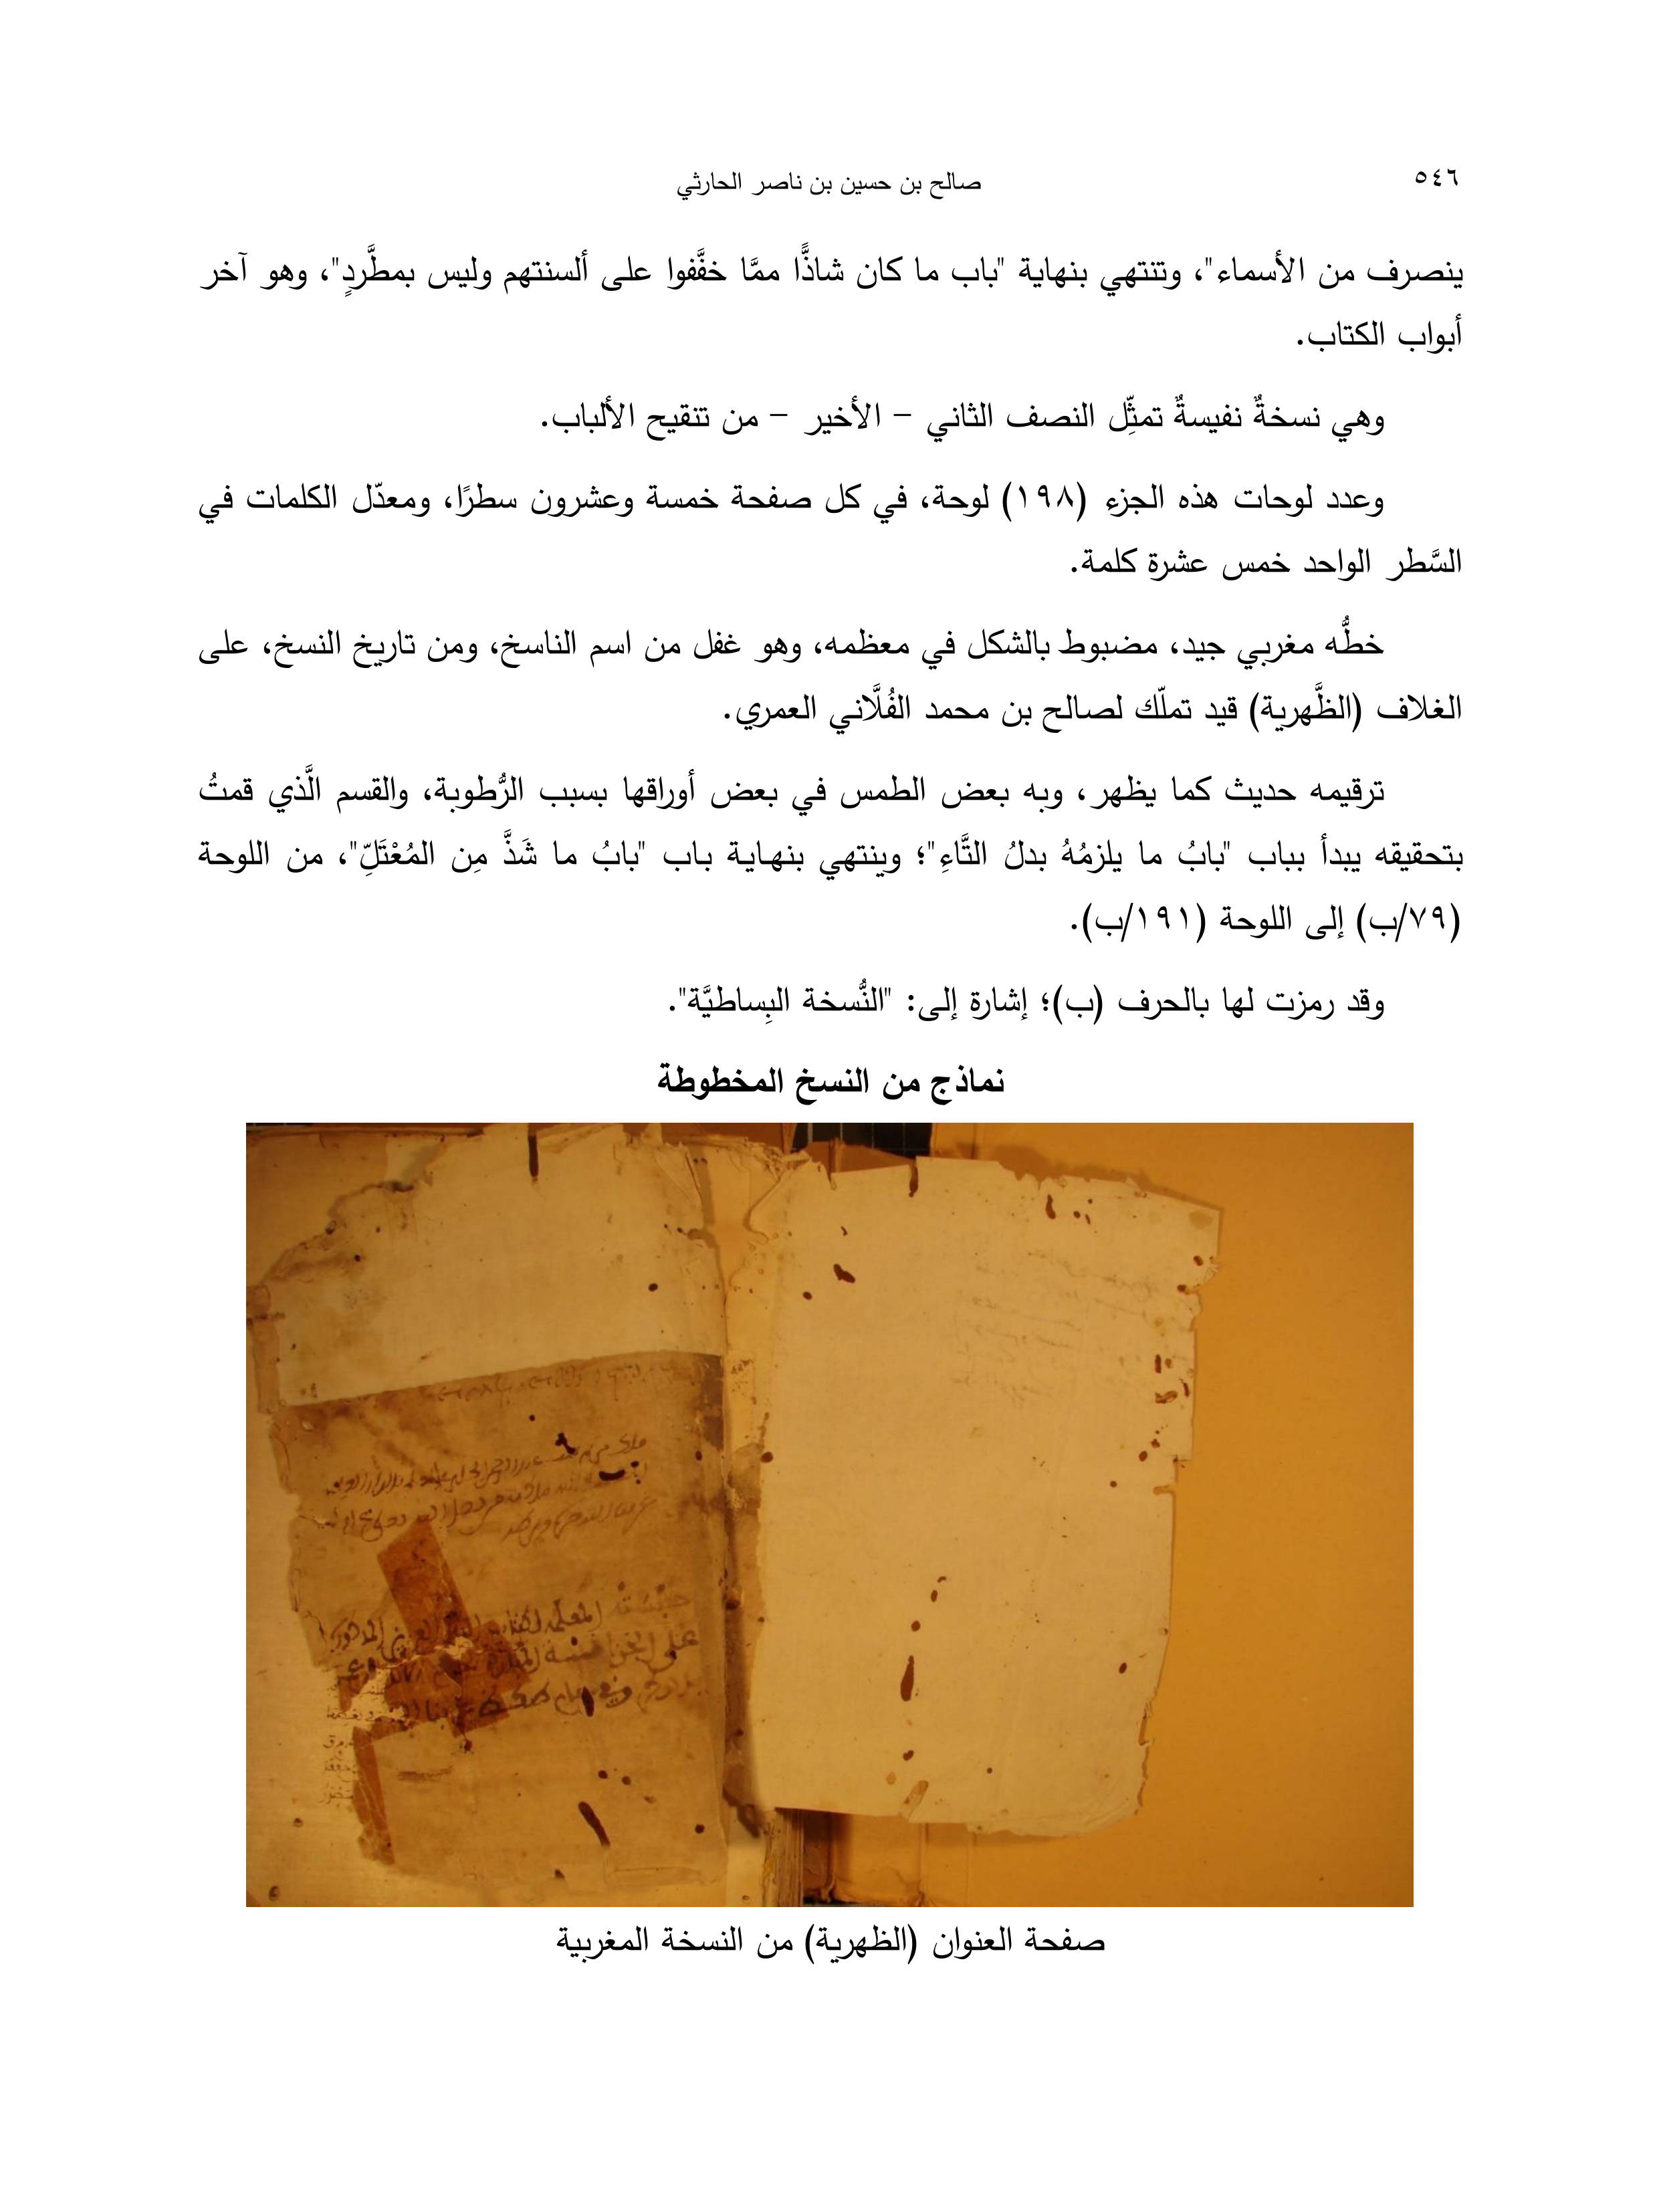 ٥٤٦
صالح بن حسين بن ناصر الحارثي
ينصرف من الأسماء"، وتنتهي بنهاية "باب ما كان شاذًّا ممَّا خفَّفوا على ألسنتهم وليس بمطَّردٍ"، وهو آخر
أبواب الكتاب.
وهي نسخةٌ نفيسةٌ تمثِّل النصف الثاني – الأخير – من تنقيح الألباب.
وعدد لوحات هذه الجزء (١٩٨) لوحة، في كل صفحة خمسة وعشرون سطرًا، ومعدّل الكلمات في
السَّطر الواحد خمس عشرة كلمة.
خطُّه مغربي جيد، مضبوط بالشكل في معظمه، وهو غفل من اسم الناسخ، ومن تاريخ النسخ، على
الغلاف (الظَّهرية) قيد تملّك لصالح بن محمد الفُلَّاني العمري.
ترقيمه حديث كما يظهر، وبه بعض الطمس في بعض أوراقها بسبب الرُّطوبة، والقسم الَّذي قمتُ
بتحقيقه يبدأ بباب "بابُ ما يلزمُهُ بدلُ التَّاءِ"؛ وينتهي بنهاية باب "بابُ ما شَذَّ مِن المُعْتَلِّ"، من اللوحة
(٧٩/ب) إلى اللوحة (١٩١/ب).
وقد رمزت لها بالحرف (ب)؛ إشارة إلى: "النُّسخة البِساطيَّة".
نماذج من النسخ المخطوطة
صفحة العنوان (الظهرية) من النسخة المغربية